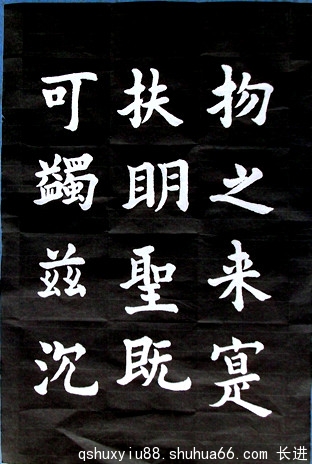 物之来寔
扶明聖既
可蠲兹沉
qshuxyiu88.shuhua66.com 长进